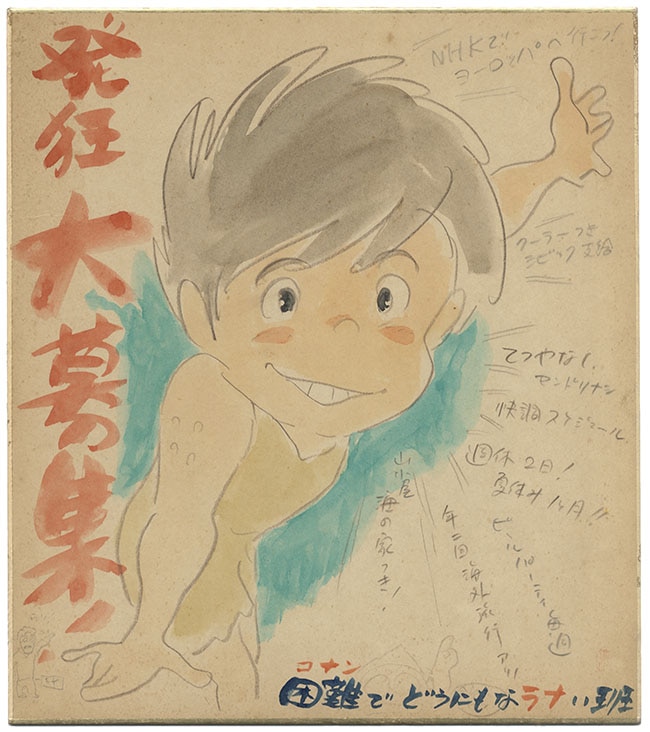 発狂
大募集!!
NHKで!!
ヨーロッパへ行こう!
クーラーつき
シビック支給
てつやなし、
快調スケジュール
週休2日!
夏休み1ヶ月!!
ビールパーティ毎週
年一回海外旅行アリ
山小屋
海の家つき!
コナン
困難でどうにもなラナい班